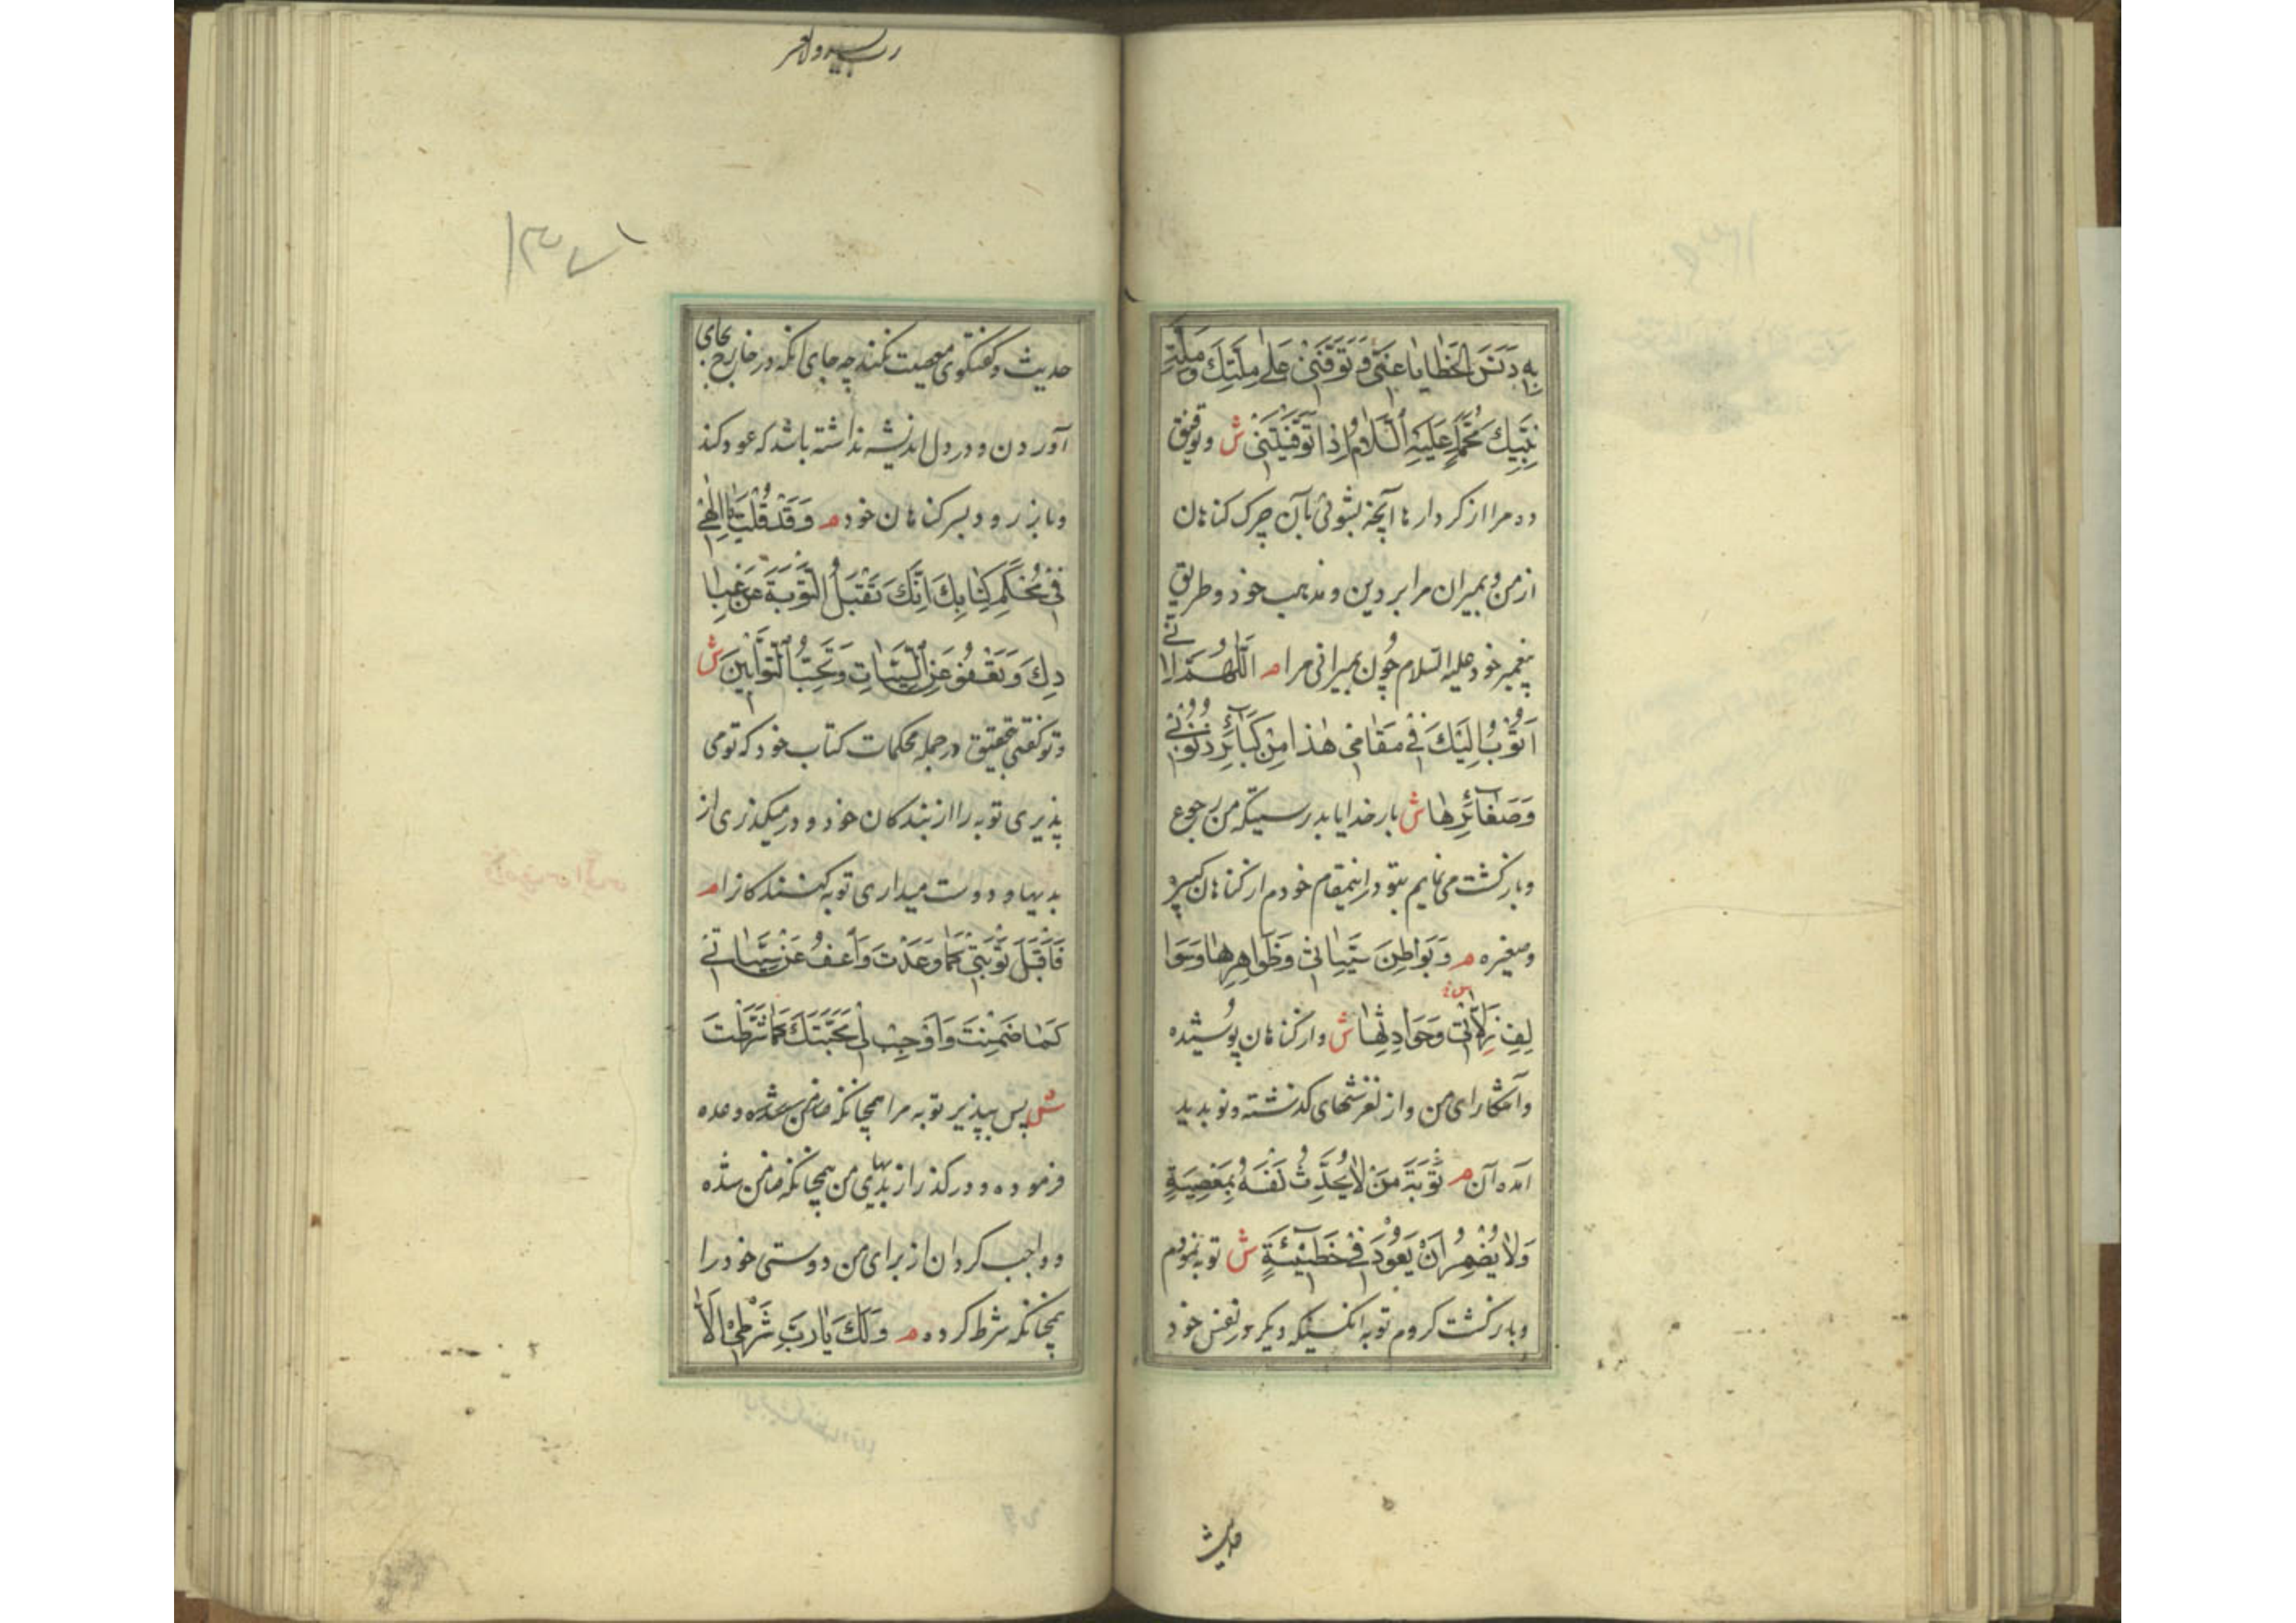 بِهِ دَنَسَ الْخَطٰايٰا عَنّٰى وَ تَوَفَّنٖى عَلٰى مِلَّتِكَ وَ مِلَّةِ
نَبِيِّكَ مُحَمَّدٍ عَلَيْهِ السَّلٰامُ إِذٰا تَوَفَّيْتَنٖى ش و توفیق
ده مرا از کردارها آنچه بشوئی بآن چرک کناهان
از من و بمیران مرا بر دین و مذهب خود و طریق
پیغمبر خود علیه السلام چون بمیرانی مرا م اَللّٰهُمَّ اِنّٖى
اَتُوْبُ اِلَيْكَ فٖى مَقٰامٖى هٰذٰا مِنْ كَبٰٓائِرِ ذُنُوْبٖى
وَ صَغٰٓائِرِهٰا ش بار خدایا بدرستیکه من رجوع
و بازکشت می نمایم بتو در اینمقام خودم از کناهان کبیره
و صغیره م وَ بَوٰاطِنَ سَيِّئٰاتٖى وَ ظَوٰاهِرِهٰا وَ سَوٰا
لِفِ زَلّٰاتٖى وَ حَوٰادِثِهٰا ش و از کناهان پوشیده
و آشکارای من و از لغزشهای کذشته و نو پدید
آمده آن م تَوْبَةَ مَنْ لٰا يُحَدِّثُ نَفْسَهُ بِمَعْصِيَةٍ
وَ لٰا يُضْمِرُ اَنْ يَعُوْدَ فٖى خَطٖيْٓئَةٍ ش توبه نمودم
و بازکشت کردم توبه انکسیکه دیکر در نفس خود
حدیث
رب یسر و لا تعسر
حدیث و کفتکوی معصیت نکند چه جای انکه در خارج بجای
آوردن و در دل اندیشه نداشته باشد که عود کند
و باز رود بسر کناهان خود م وَ قَدْ قُلْتَ يٰا اِلٰهٖى
فٖى مُحْكَمِ كِتٰابِكَ اِنَّكَ تَقْبَلُ التَّوْبَةَ عَنْ عِبٰا
دِكَ وَ تَعْفُوْ عَنِ السَّيِّئٰاتِ وَ تُحِبُّ التَّوّٰابٖينَ ش
و تو کفتی بتحقیق در جمله محکمات کتاب خود که تو می
پذیری توبه را از بندکان خود و درمیکذری از
بدیها و دوست میداری توبه کنندکانرا م
فَاقْبَلْ تَوْبَتٖى كَمٰا وَعَدْتَ وَ اعْفُ عَنْ سَيِّئٰاتٖى
كَمٰا ضَمِنْتَ وَ اَوْجِبْ لٖى مَحَبَّتَكَ كَمٰا شَرَطْتَ
ش پس بپذیر توبه مرا همچانکه وعده
فرموده و درکذر از بدیهای من همچانکه ضامن شده
و واجب کردان از برای من دوستی خود را
همچانکه شرط کرده م وَ لَكَ يٰا رَبِّ شَرْطٖى اَلّٰا